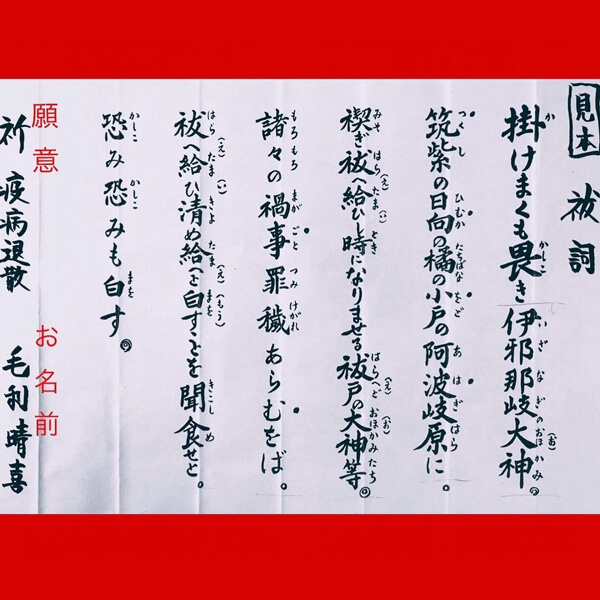 見本
祓詞
掛けまくも畏き伊邪那岐大神。
筑紫の日向の橘の小戸の阿波岐原に。
禊ぎ祓へ給ひし時になりませる祓戸の大神等。
諸々の禍事罪穢あらむをば。
祓へ給ひ清め給へと白すことを聞食せと。
恐み恐みも白す。
願意
祈 疫病退散
お名前
毛利晴喜